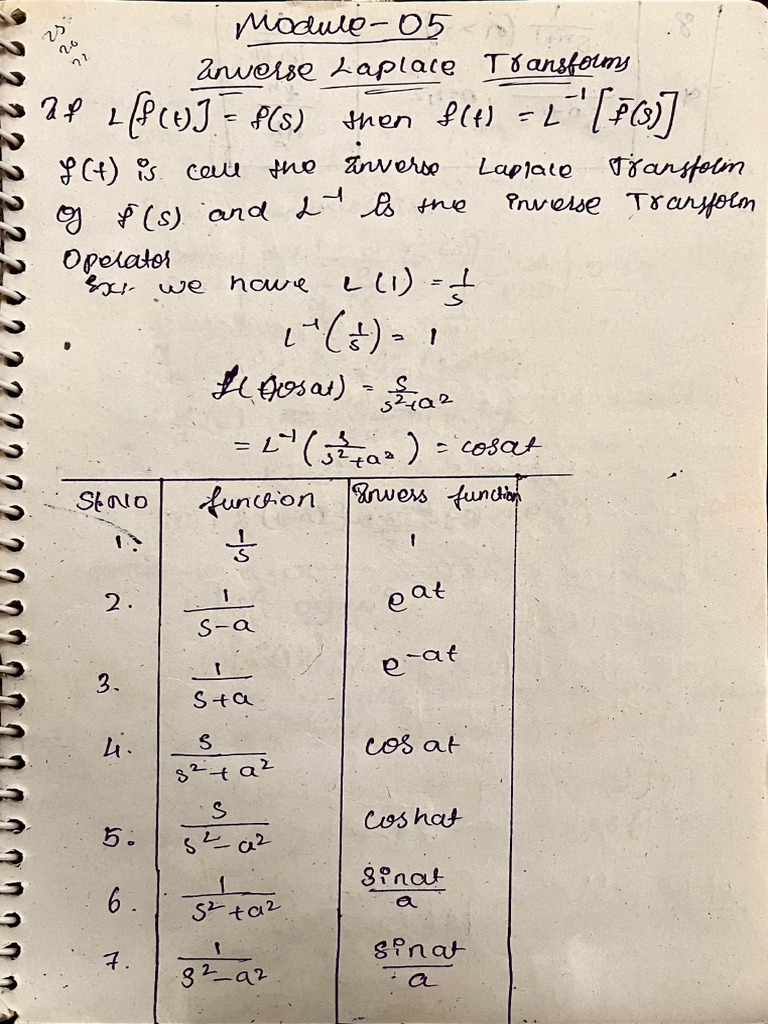 25.
26
27
Module-05
Inverse Laplace Transforms
If L[f(t)] = f̄(s) then f(t) = L⁻¹[f̄(s)]
f(t) is call the inverse Laplace Transform
of f̄(s) and L⁻¹ is the inverse Transform
Operator
Ex:- we have L(1) = 1/s
L⁻¹(1/s) = 1
L(cosat) = s/s²+a²
= L⁻¹(s/s²+a²) = cosat
Sl.No function Inverss function
1. 1/s 1
2. 1/s-a e^at
3. 1/s+a e^-at
4. s/s²+a² cos at
5. s/s²-a² coshat
6. 1/s²+a² sinat/a
7. 1/s²-a² sinat/a